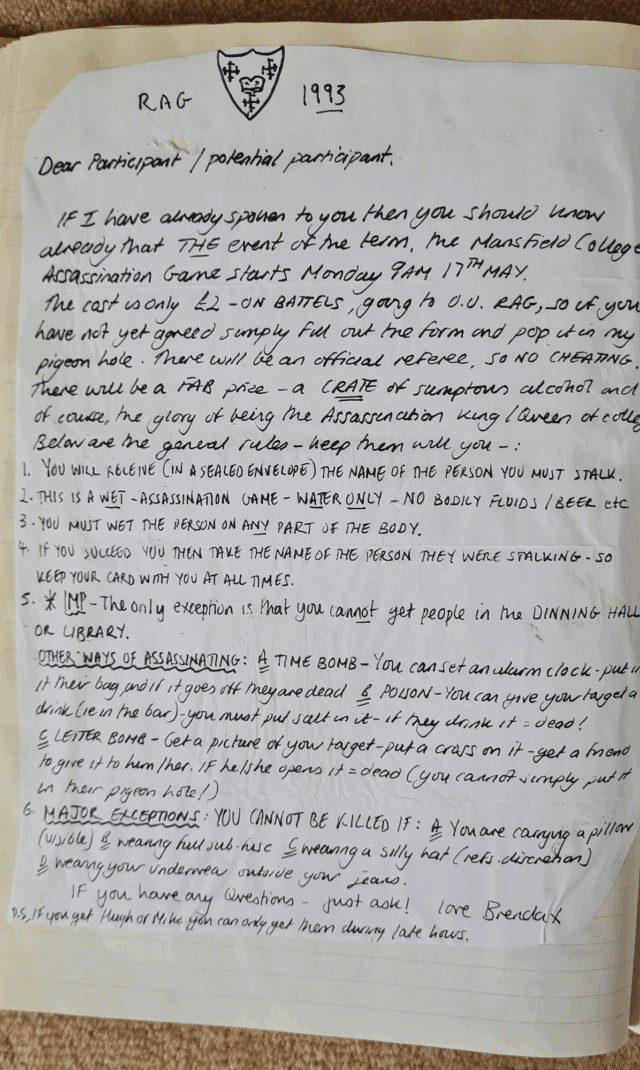 RAG 1993
Dear Participant / potential participant.
IF I have already spoken to you then you should know
already that THE event of the term, the Mansfield College
Assassination Game starts Monday 9AM 17TH MAY.
The cost is only £2 - ON BATTELS, going to O.U. RAG, so if you
have not yet agreed simply fill out the form and pop it in my
pigeon hole. There will be an official referee, so NO CHEATING.
There will be a FAB prize - a CRATE of sumptous alcohol and
of course, the glory of being the Assassination King / Queen of colleg
Below are the general rules - keep them will you - :
1. YOU WILL RECEIVE (IN A SEALED ENVELOPE) THE NAME OF THE PERSON YOU MUST STALK.
2. THIS IS A WET - ASSASSINATION GAME - WATER ONLY - NO BODILY FLUIDS / BEER etc
3. YOU MUST WET THE PERSON ON ANY PART OF THE BODY.
4. IF YOU SUCCEED YOU THEN TAKE THE NAME OF THE PERSON THEY WERE STALKING - SO
KEEP YOUR CARD WITH YOU AT ALL TIMES.
5. * IMP - The only exception is that you cannot get people in the DINNING HALL
OR LIBRARY.
OTHER WAYS OF ASSASSINATING : A TIME BOMB - You can set an alarm clock - put i
it their bag, and if it goes off they are dead B POISON - You can give your target a
drink (ie in the bar) - you must put salt in it - if they drink it = dead!
C LETTER BOMB - Get a picture of your target - put a cross on it - get a friend
to give it to him/her. IF he/she opens it = dead (you cannot simply put it
in their pigeon hole!)
6. MAJOR EXCEPTIONS : YOU CANNOT BE KILLED IF : A You are carrying a pillow
(visible) B wearing full sub-fusc C wearing a silly hat (refs. discretion)
D wearing your underwear outside your jeans.
IF you have any Questions - just ask! love Brenda X
P.S. IF you get Hugh or Mike you can only get them during late hours.